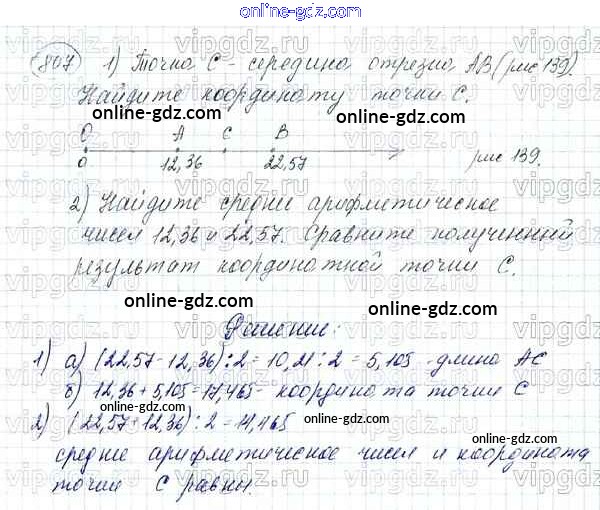 online-gdz.com
807 1) Точка С - середина отрезка АВ (рис 139).
Найдите координату точки С.
О А С В
0 12,36 22,57 рис 139.
online-gdz.com
2) Найдите среднее арифметическое
чисел 12,36 и 22,57. Сравните полученный
результат координатной точки С.
online-gdz.com
Решение:
1) а) (22,57-12,36):2=10,21:2=5,105 - длина АС
б) 12,36+5,105=17,465 - координата точки С
2) (22,57+12,36):2=17,465
среднее арифметическое чисел и координата
точки С равны.